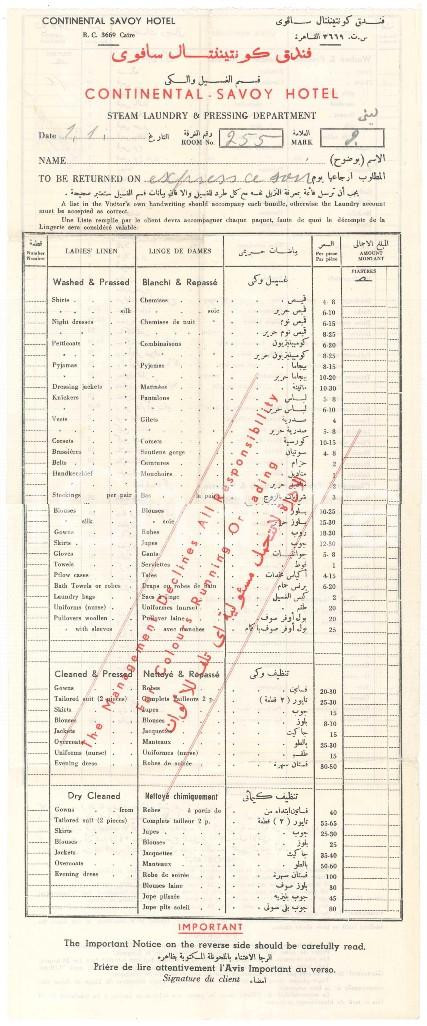 CONTINENTAL SAVOY HOTEL فندق كونتيننتال سافوى
R. C. 3669 Caire س.ت. ٣٦٦٩ القاهرة
فندق كونتيننتال سافوى
قسم الغسيل والكى
CONTINENTAL - SAVOY HOTEL
STEAM LAUNDRY & PRESSING DEPARTMENT
Date 1, 1. التاريخ رقم الغرفة ROOM No. 255 العلامة MARK
NAME الاسم (بوضوح)
TO BE RETURNED ON express المطلوب ارجاعها يوم
A list in the Visitor's own handwriting should accompany each bundle, otherwise the Laundry account
must be accepted as correct.
Une Liste remplie par le client devra accompagner chaque paquet, faute de quoi le décompte de la
Lingerie sera considéré valable.
قطعة Number Nombre LADIES' LINEN LINGE DE DAMES بياضات حريمى السعر Per piece Par pièce المبلغ الاجمالى AMOUNT MONTANT
PIASTRES
Washed & Pressed Blanchi & Repassé غسيل وكى
Shirts Chemises قميص 4-8
" silk " soie قميص حرير 6-10
Night dresses Chemises de nuit قميص نوم 6-15
" " " " قميص نوم حرير 8-25
Petticoats Combinaisons كومبينيزون 6-20
" " كومبينيزون حرير 8-25
Pyjamas Pyjamas بيجاما 8-15
" " بيجاما حرير 10-20
Dressing jackets Matinées 10-30
Knickers Pantalons لباس 5-8
" " لباس حرير 6-10
Vests Gilets صدرية 4
" " صدرية حرير 5-8
Corsets Corsets كورسيه 10-15
Brassières Soutiens gorge سوتيان 4-8
Belts Ceintures حزام 2
Handkerchief Mouchoirs منديل 1
Stockings per pair Bas la paire 3
Blouses Blouses بلوز 10-25
" silk " soie بلوز حرير 15-30
Gowns Robes روب 18-30
Skirts Jupes جوب 12-30
Gloves Gants 5-8
Towels Serviettes فوط 1
Pillow cases Taies أكياس مخدات 4-15
Bath Towels or robes Draps ou robes de bain برنس حمام 6-20
Laundry bags Sacs à linge كيس الغسيل 2
Uniforms (nurse) Uniformes (nurse) طقم 20
Pullovers woollen Pullover laine بول أوفر صوف 20
" with sleeves " avec manches بول أوفر صوف بأكمام 25
Cleaned & Pressed Nettoyé & Repassé تنظيف وكى
Gowns Robes فساتين 20-30
Tailored suit (2 pieces) Complete tailleurs 2 p. تايور (٢ قطعة) 25-30
Skirts Jupes جوب 15
Blouses Blouses بلوز 8-10
Jackets Jacquettes جاكيت 15
Overcoats Manteaux بالطو 25-30
Uniforms (nurse) Uniformes (nurse) طقم 15
Evening dress Robes de soirée فستان سهرة 30-50
Dry Cleaned Nettoyé chimiquement تنظيف كيمائى
Gowns from Robes à partir de فساتين ابتداء من 40
Tailored suit (2 pieces) Complete tailleur 2 p. تايور (٢) قطعة 55-65
Skirts Jupes جوب 25-30
Blouses Blouses بلوز 25
Jackets Jacquettes جاكيت 35-40
Overcoats Manteaux بالطو 50-60
Evening dress Robe de soirée فستان سهرة 100
Blouses laine بلوز صوف 30
Jupe plissée جوب بليزيه 45
Jupe plis soleil جوب بلى سولى 80
The Management Declines All Responsibility
For Colours Running Or Fading
الادارة لا تتحمل مسئولية اى تلف للألوان
IMPORTANT
The Important Notice on the reverse side should be carefully read.
الرجا الانتباه بالملحوظة المكتوبة بظاهره
Prière de lire attentivement l'Avis Important au verso.
Signature du client امضاء